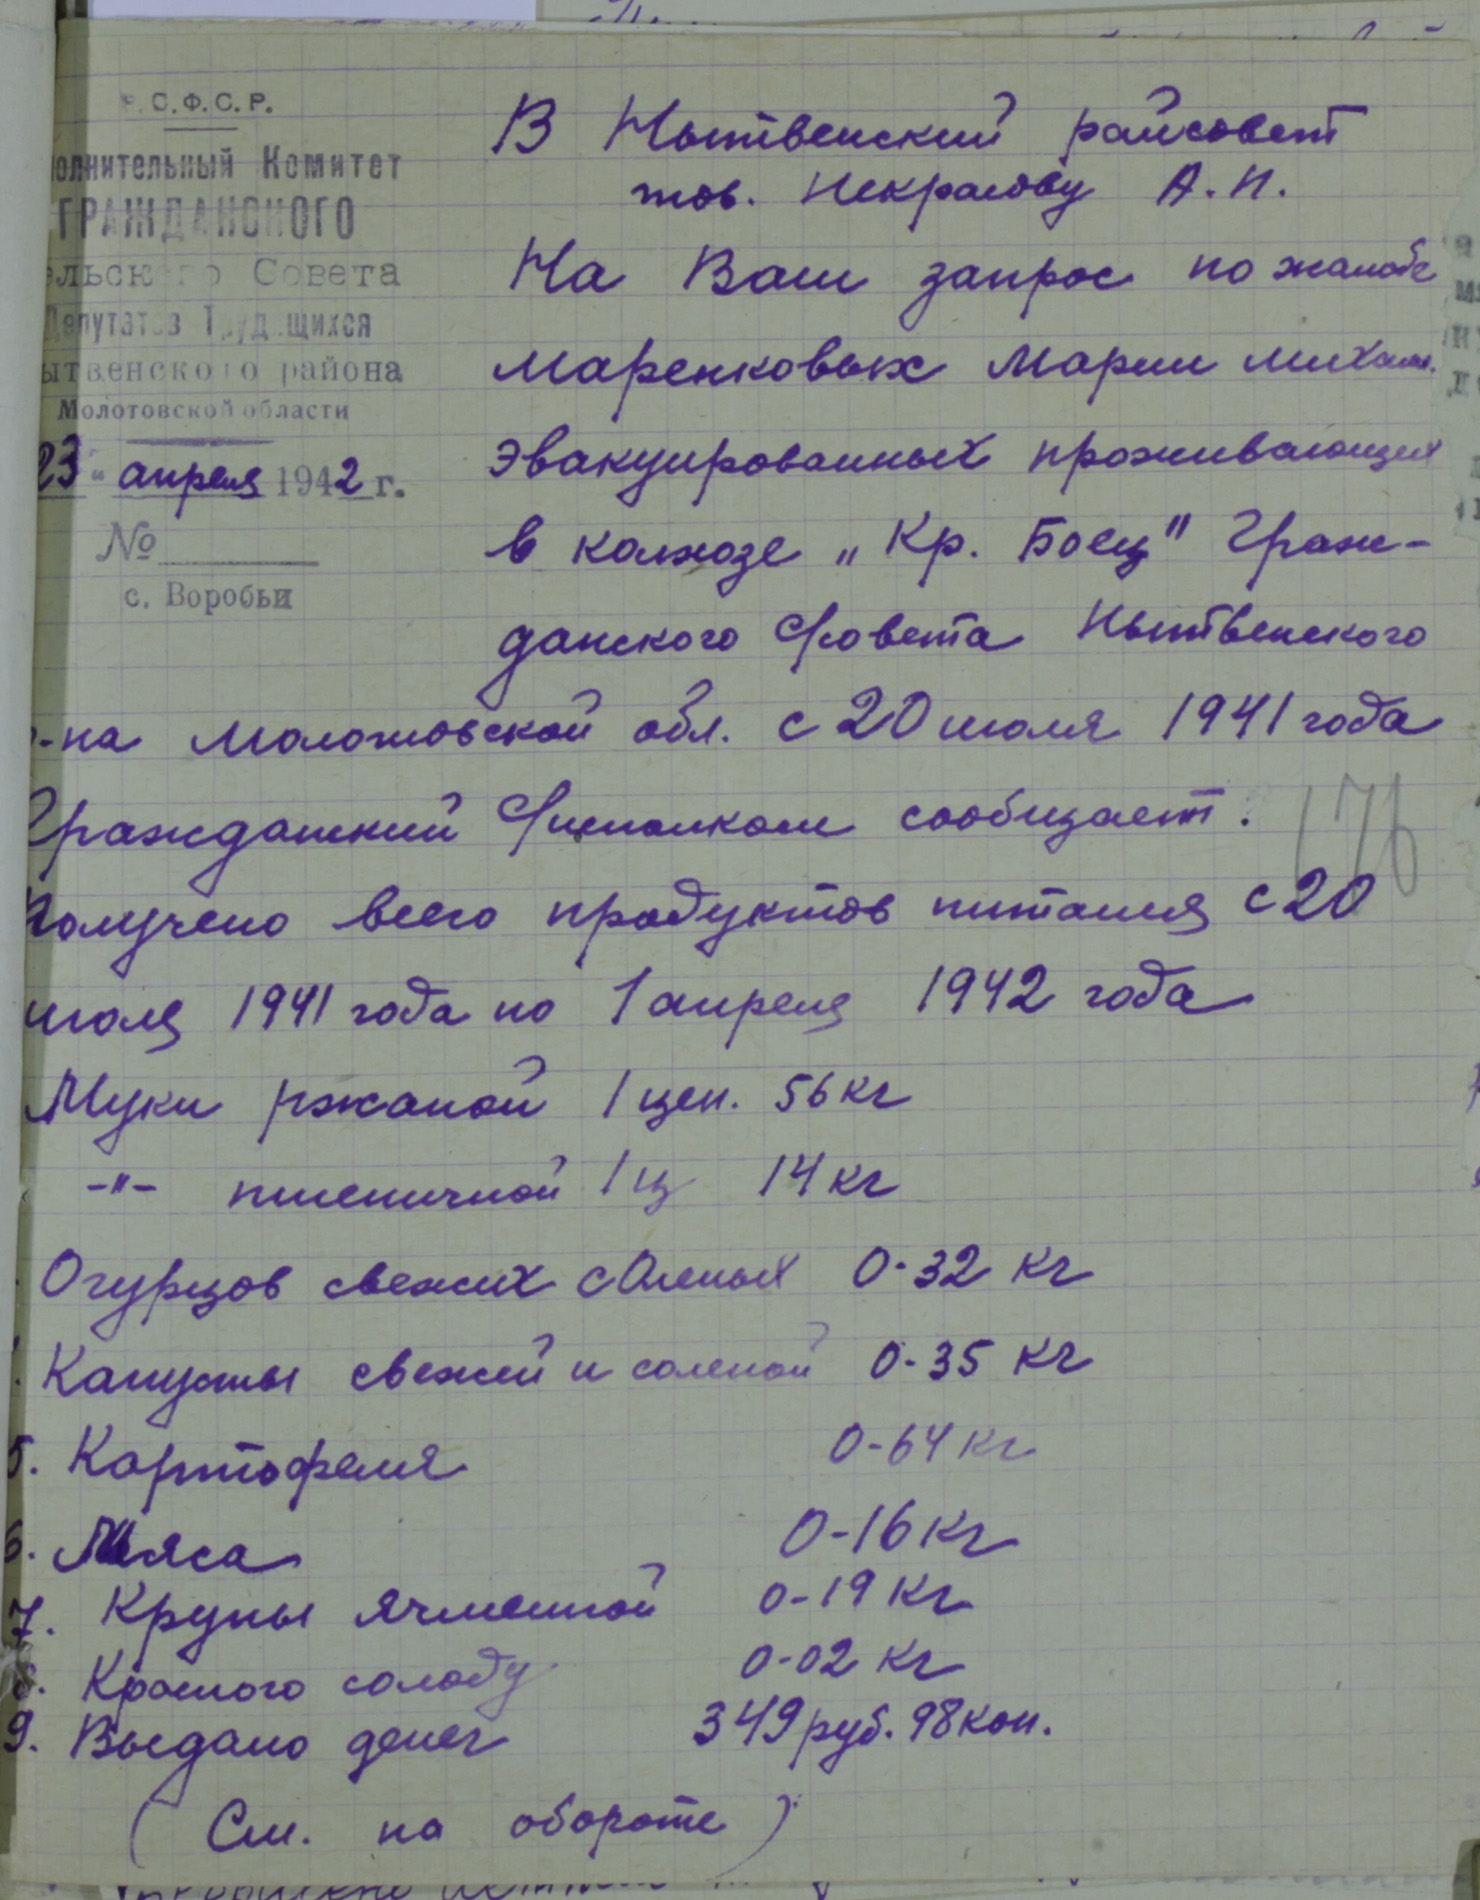 Р.С.Ф.С.Р.
олнительный Комитет
ГРАЖДАНСКОГО
ельского Совета
Депутатов Трудящихся
ытвенского района
Молотовской области
23 " апреля 1942 г.
№
с. Воробьи
В Нытвенский райсовет
тов. Некрасову А.Н.
На Ваш запрос по жалобе
Маренковых Марии Михаил.
эвакуированных проживающих
в колхозе „Кр. Боец" Граж-
данского С/совета Нытвенского
р-на Молотовской обл. с 20 июля 1941 года
Гражданский С/исполком сообщает:
176
Получено всего продуктов питания с 20
июля 1941 года по 1 апреля 1942 года
Муки ржаной 1 цен. 56 кг
-"- пшеничной 1 ц 14 кг
Огурцов свежих соленых 0-32 кг
Капусты свежей и соленой 0-35 кг
5. Картофеля 0-64 кг
6. Мяса 0-16 кг
7. Крупы ячменной 0-19 кг
8. Красного солоду 0-02 кг
9. Выдано денег 349 руб. 98 коп.
( См. на обороте )